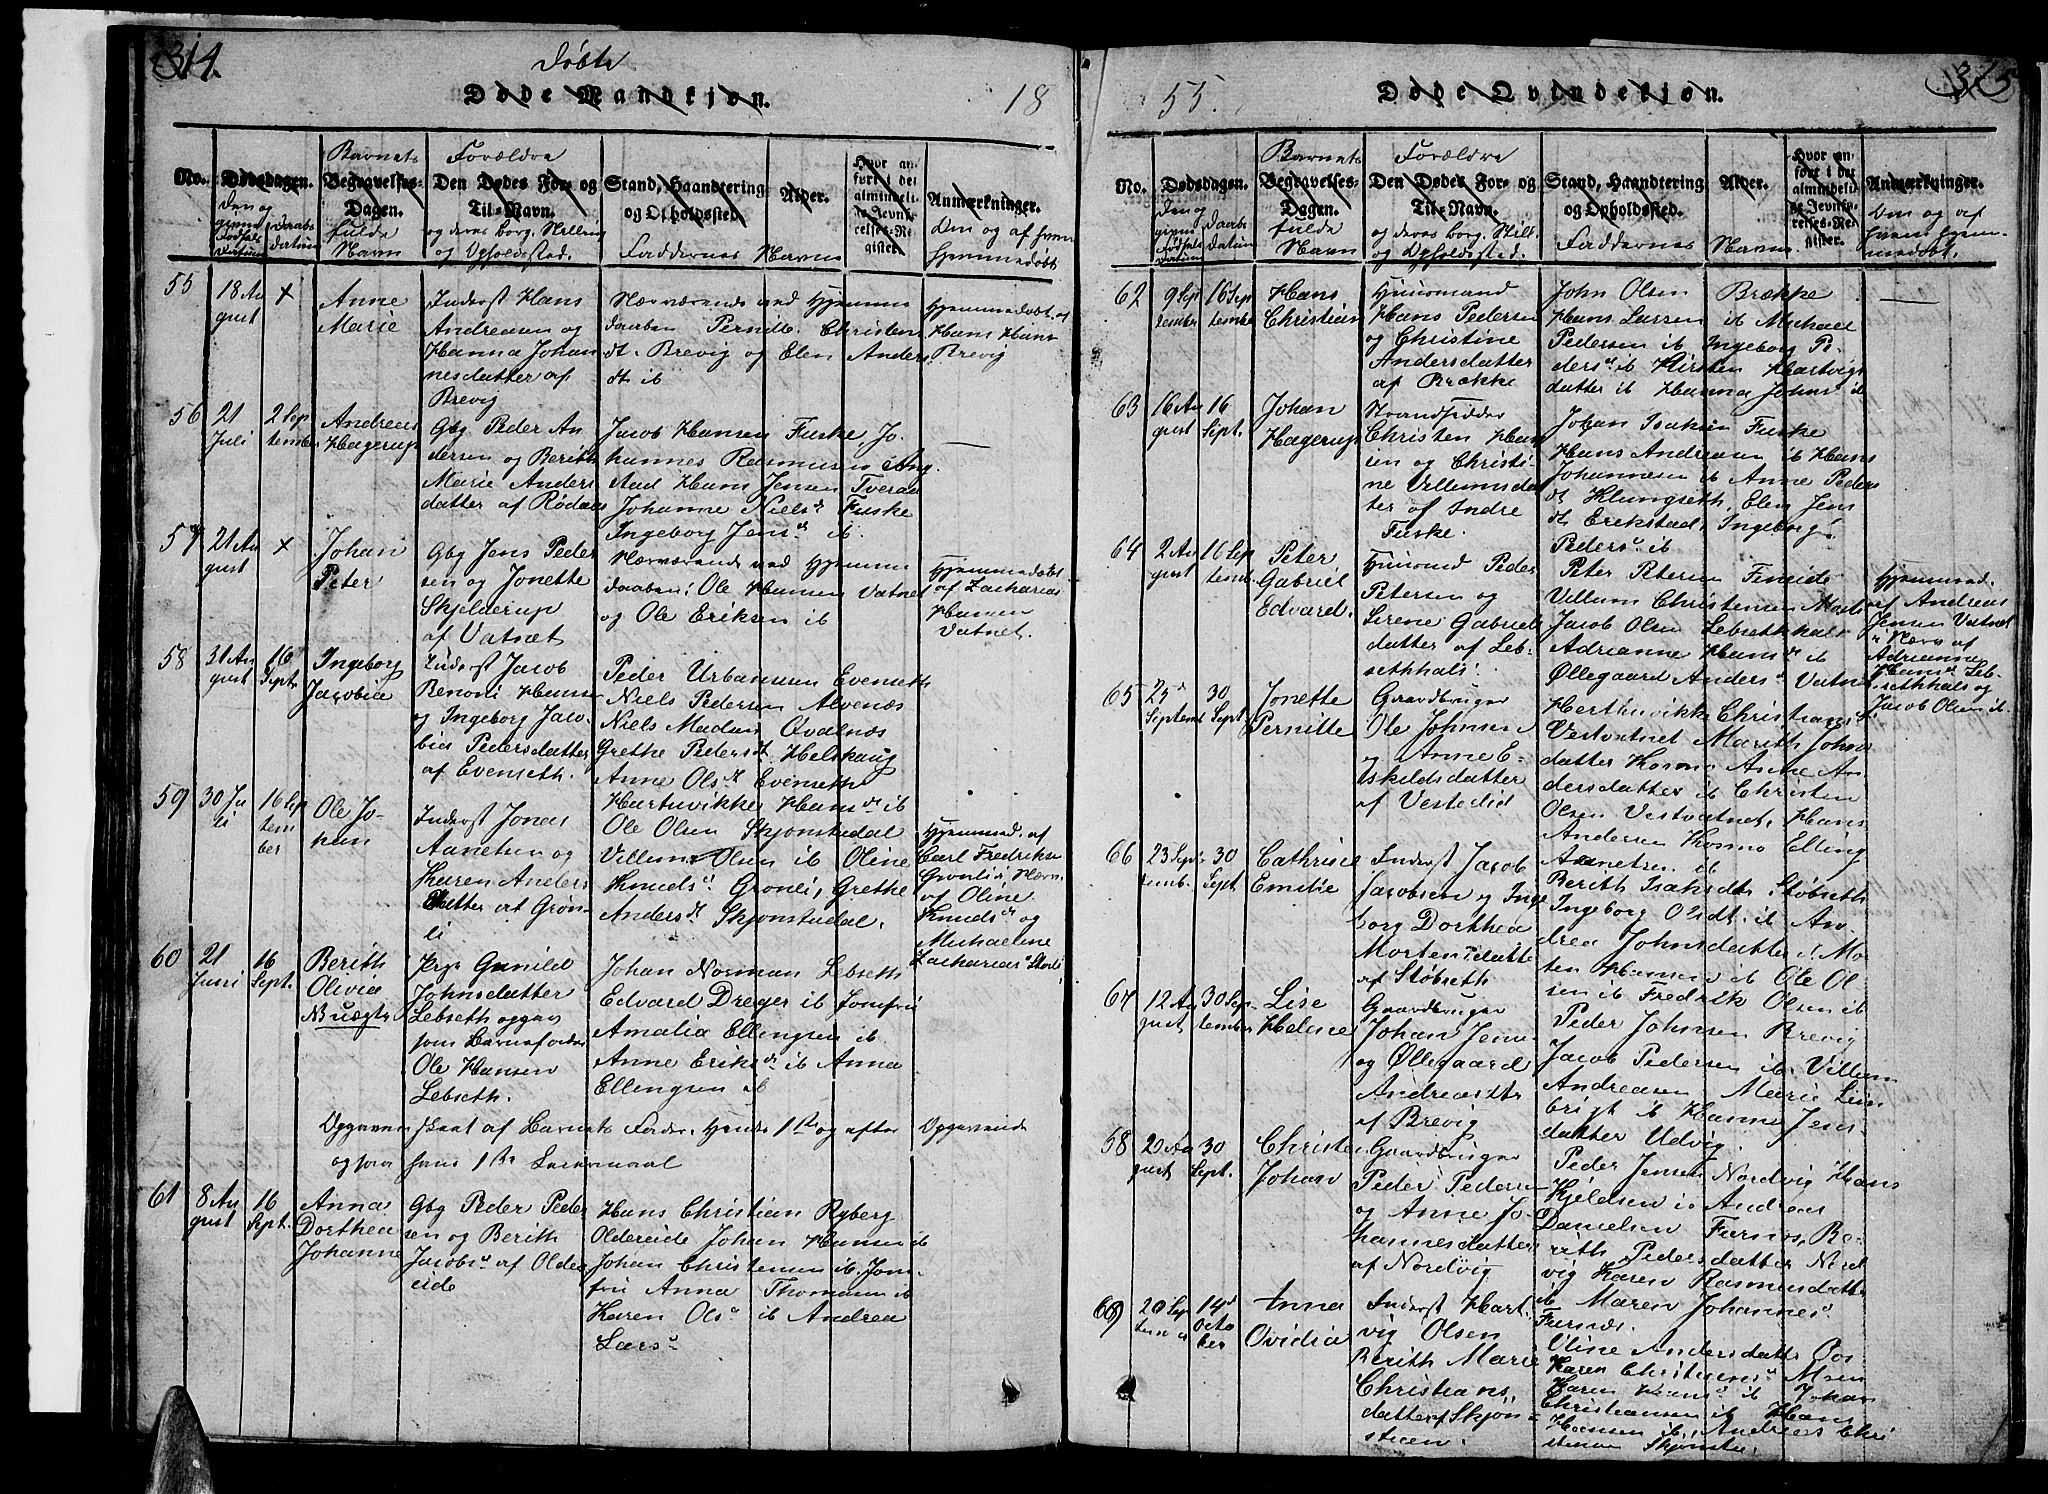 314.
Døbte
Døde Mandkjøn.
18
No.
Dødsdagen.
Begravelses-
Dagen.
Barnets
fulde
Navn
Forældre
Den Dødes For- og
Til-Navn.
og deres borg. Stilling
og Opholdssted.
Stand, Haandtering
og Opholdssted.
Alder.
Faddernes Navne
Hvor an-
ført i det
almindeli-
ge Jevnfø-
relses-Re-
gister.
Anmærkninger.
Den og af hvem
hjemmedøbt
55
18 Au
gust
×
Anne
Marie
Inderst Hans
Andreasen og
Hanna Johan
nesdatter af
Brevig
Nærværende ved Hjemme
daaben Pernille Christens
dt. Brevig og Elen Anders
dt ib
Hjemmedøbt af
Hans Hans
Brevig
56
21
Juli
2 Sep
tember
Andreas
Hagerup
Gbg Peder An
dersen og Berith
Marie Anders
datter af Rødaas
Jacob Hansen Fuske, Jo
hannes Rasmusen ib
Hans Jensen Tveraa
Johanne Niels Fuske
Ingeborg Jens ib.
57
21 Au
gust
×
Johan
Peter
Gbg Jens Peder
sen og Jonette
Skjelderup
af Vatnet
Nærværende ved Hjemme
daaben: Ole Hansen Vatnet
og Ole Eriksen ib
Hjemmedøbt
af Zacharias
Hansen
Vatnet.
58
31 Au
gust
16
Sept.
Ingeborg
Jacobia
Inderst Jacob
Benoni Hansen
og Ingeborg Jaco-
bia Pedersdatter
af Evenseth.
Peder Urbansen Evenseth
Niels Pedersen Alvenæs
Niels Madsen Qvalnæs
Grethe Pedersdt Helskaug
Anne Olsdt Evenseth
Hartvikke Hansdt ib
59
30 Ju
li
16 Sep
tem
ber
Ole Jo-
han
Inderst Jonas
Aanetsen og
Karen Anders
datter af Grøn-
li
Ole Olsen Skjønstadal
Villum Olsen ib Oline
Knudsdt Grønli, Grethe
Andersdt Skjønstadal.
Hjemmed. af
Carl Fredriksen
Grønli i Nærv.
af Oline
Knudsdt og
Michaeline
Zacharias Storli
60
21
Juni
16
Sept.
Berith
Olivia
NB uægte
Pige Gunild
Johnsdatter
Lebseth opgav
som Barnefader
Ole Hansen
Lebseth.
Johan Norman Lebseth
Edvard Dreyer ib Jomfru
Amalia Ellingsen ib
Anne Eriksdt ib Anna
Ellingsen ib
Opgaven skeat af Barnets Fader. Hendes 1ste og efter Opgavende
ogsaa hans 1ste Leiermaal
61
8 Au
gust
16
Sept.
Anna
Dorthea
Johanne
Gbg Peder Peder
sen og Berith
Jacobs af Older
eide
Hans Christian Ryberg
Oldereide Johan Hansen ib
Johan Christensen ib. Jom-
fru Anna Thomasen ib
Karen Ols ib Andrea
Lars
55.
Døde Qvindekjøn.
315
No.
Dødsdagen.
Daabs
Datum
Barnets
Begravelses-
Dagen.
fulde
Navn
Forældre
Den Dødes For- og
Til-Navn.
og deres borg. Still.
og Opholdssted.
Stand, Haandtering
og Opholdssted.
Alder.
Faddernes Navne
Hvor an-
ført i det
almindeli-
ge Jevnfø-
relses-Re-
gister.
Anmærkninger.
Den og af
hvem hjem-
medøbt.
62
9 Sep
tember
16 Sep
tember
Hans
Christian
Huusmand
Hans Pedersen
og Christine
Andersdatter
af Brække
John Olsen Brække
Hans Larsen ib Michael
Pedersen ib Ingeborg Pe-
ders ib Kirsten Hartvigs
datter ib Hanna Johns ib
63
16 Au
gust
16
Sept.
Johan
Hagerup
Strandsidder
Christen Han
sen og Christi-
ne Villumsdat
ter af Indre
Fuske.
Johan Isaksen Fuske
Hans Andreasen ib Hans
Johannesen ib Anne Peders
dt Klungseth, Elen Jens
dt. Erikstad, Ingeborg
Peders ib
64
2 Au
gust
16 Sep
temb.
Peter
Gabriel
Edvard.
Huusmd Peder
Petersen og
Serene Gabriels
datter af Leb-
sethhals.
Peter Petersen Fineide
Villum Christensen
Jacob Olsen Lebsethhals
Adrianne Hansdt ib
Øllegaard Anders Vatnet
Hjemmed.
af Andreas
Jensen Vatnet
i Nærv af
Adrianna
Hansdt Leb-
sethhals og
Jacob Olsen ib.
65
25
Septemb
30
Sept
Jonette
Pernille
Gaardbruger
Ole Johnsen
og Anne E-
skildsdatter
af Vesteeid
Herthevikke Christians
Vestvatnet Marith Johns
datter Kosmo Anne An
dersdatter ib Christen
Olsen Vestvatnet, Hans
Andersen Kosmo Elling
Aanetsen ib
66
23 Sep
temb.
30
Sept
Cathrine
Emilie
Inderst Jacob
Jacobsen og Inge
borg Dorthea
Mortensdatter
af Støbseth
Berith Isaksdt. Støbseth
Ingeborg Olsdt. ib An-
drea Johnsdatter ib Mo-
ten Hansen ib Ole Ol
sen ib Fredrik Olsen ib
67
12 Au
gust
30 Sep
tember
Lise
Helene
Gaardbruger
Johan Jens
og Øllegaard
Andreasdtr
af Brevig
Peder Johnsen Brevig
Jacob Pedersen ib Villum
Andreasen Marie Lien
brigt ib Hanna Jens
datter Udvig
68
20 Au
gust
30
Sept.
Christen
Johan
Gaardbruger
Peder Pedersen
og Anne Jo-
hannesdatter
af Nordvig
Peder Jensen Nordvig Hans
Kjeldsen ib Andreas
Danielsen Furnæs, Be-
rith Pedersdatter Nord
vig Karen Rasmusdatter
ib Maren Johannes
Furnæs.
69
20 Sep
tember
14
Octo
ber
Anna
Ovidia
Inderst Hart
vig Olsen
Berith Marie
Christians.
datter af Skjøn-
stuen.
Oline Andersdatter
Karen Christians Moen
Karen Hans ib Johan
Christiansen ib Hans
Hansen ib, Andreas Chri
stensen